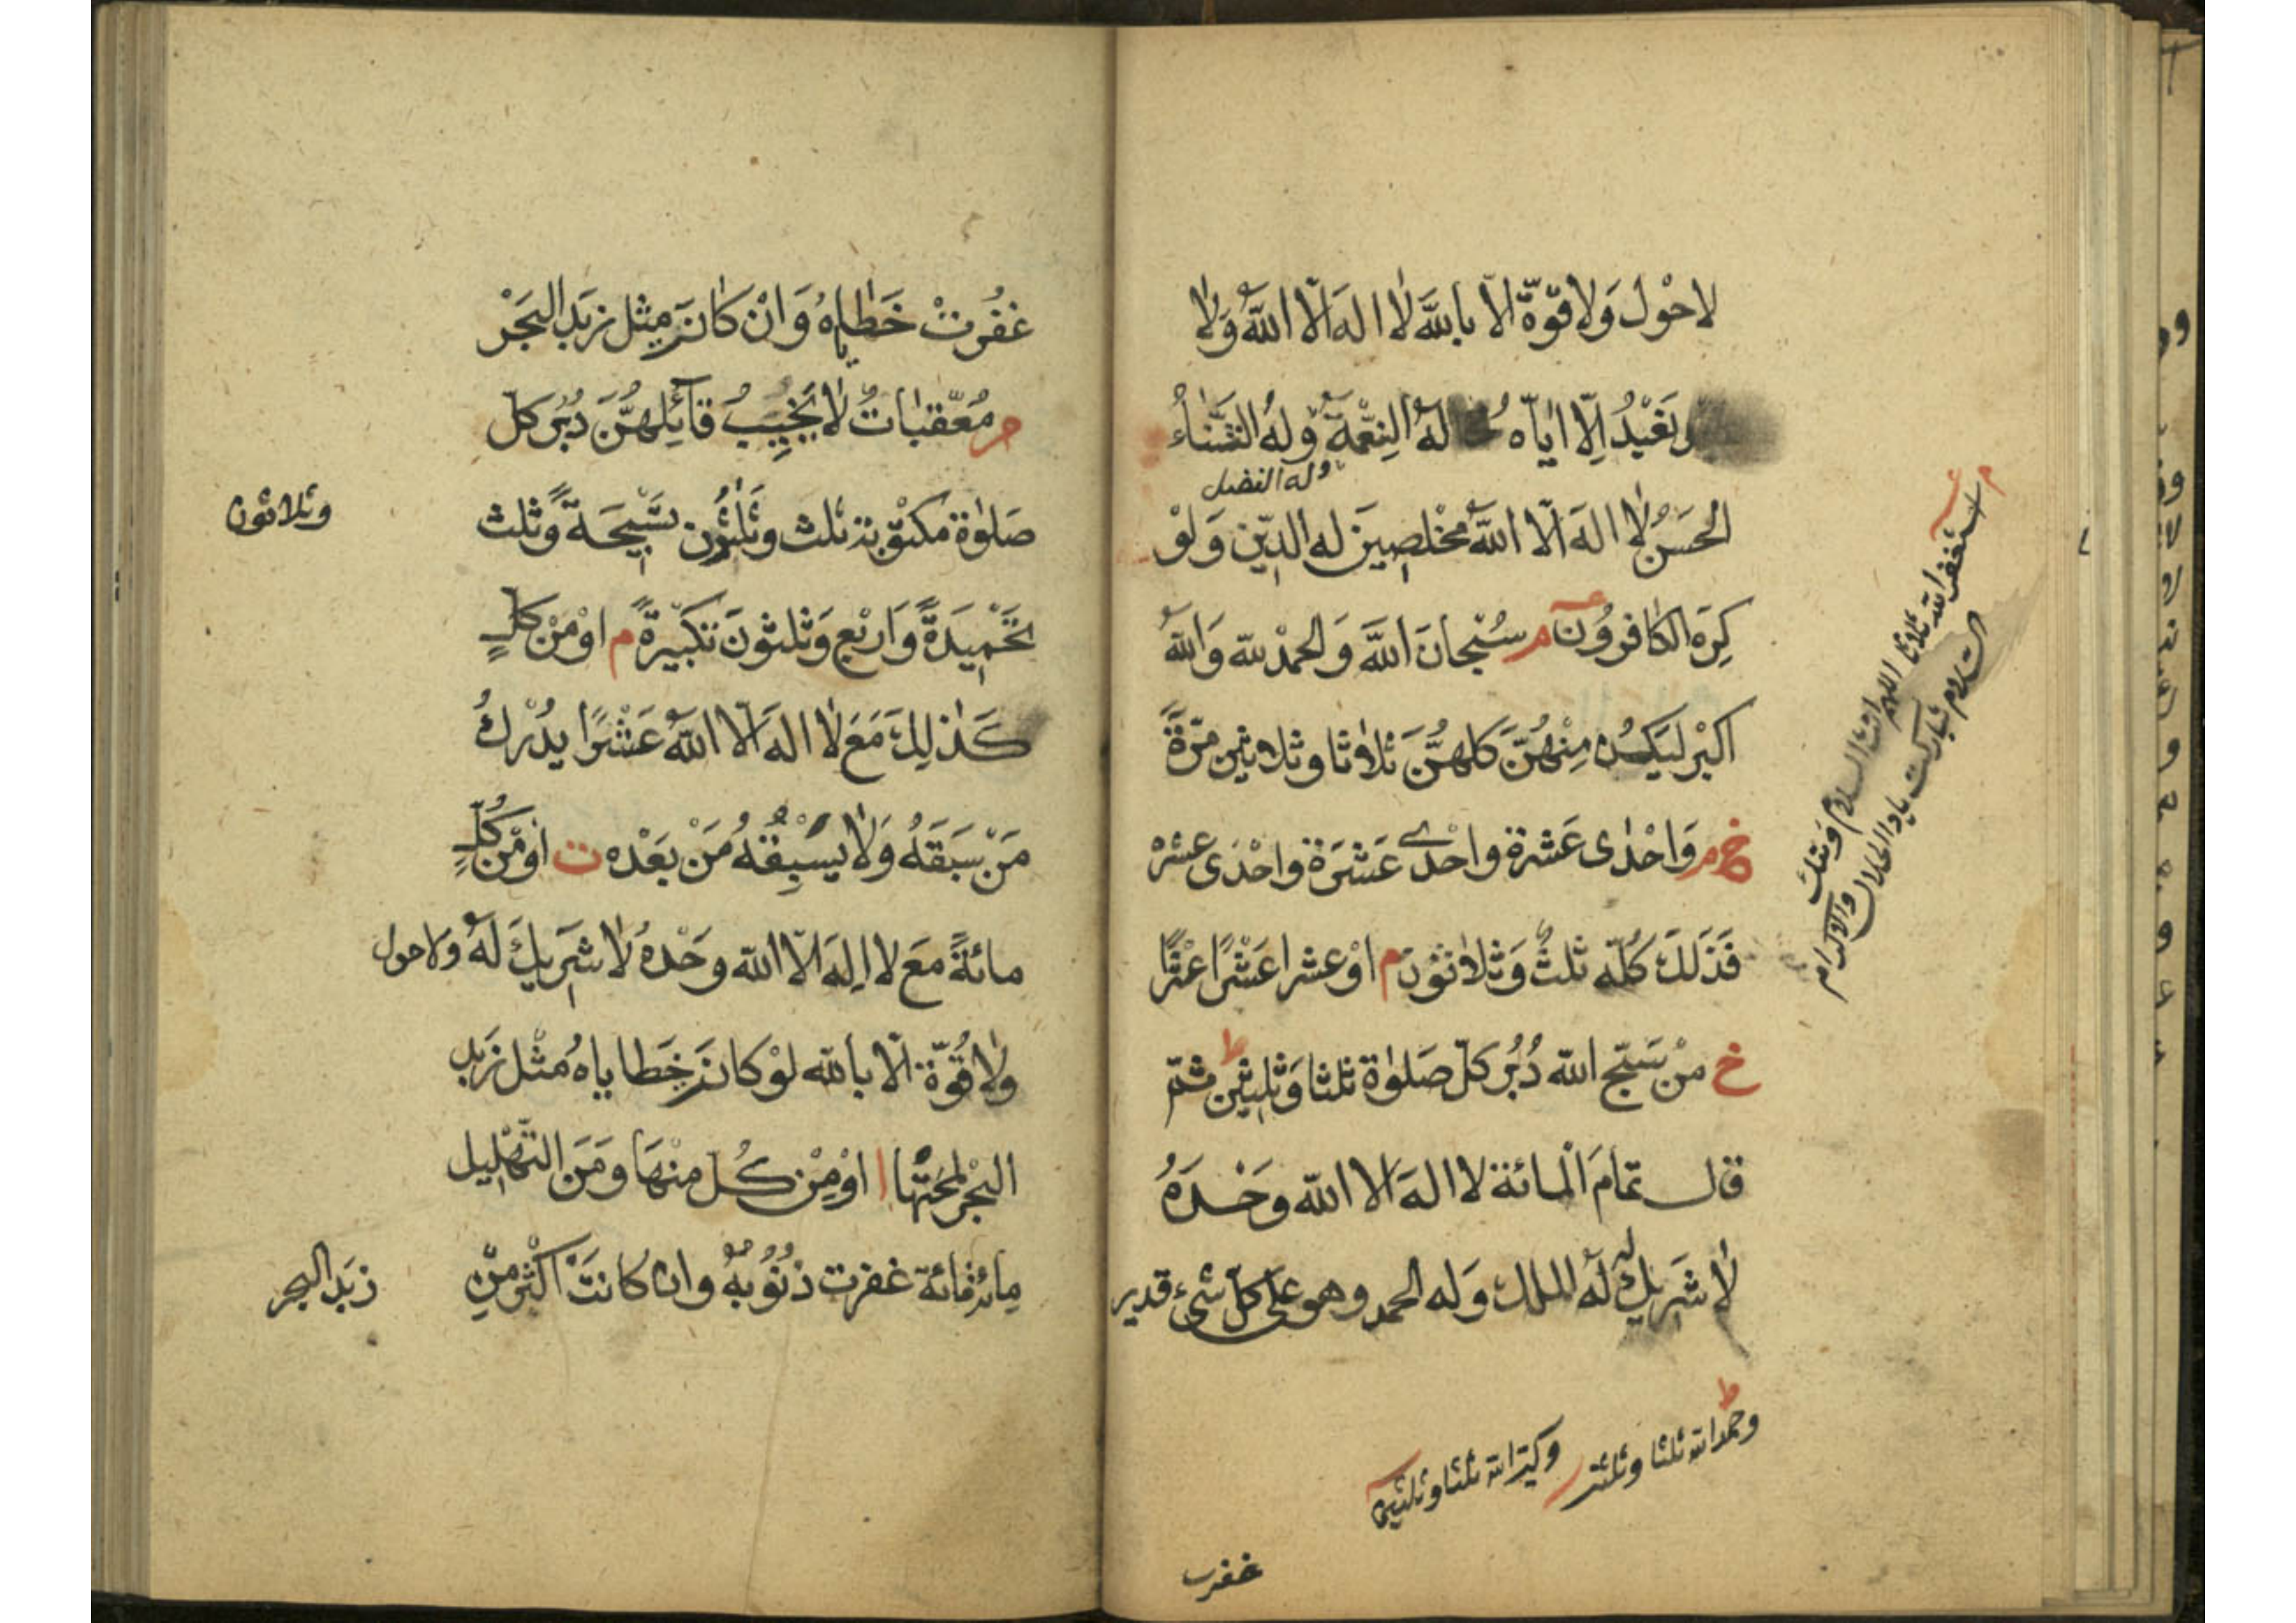 لا حَوْلَ وَلا قوّةَ الّا باللهَ لا اله الّا اللهُ وَلا
نَعْبُدُ اِلّا اياه له النِعْمَةُ وله الثَّناءُ
وله الفضل
الحَسَنُ لا اله الّا اللهُ مخْلصِينَ له الدِّين وَلوْ
كَرِهَ الكافروُن م سُبْحانَ اللهَ وَالحمْدُ لله وَاللهُ
اكبرُ ليَكُن مِنْهُنّ كلهنَّ ثلاثا وثلاثين مرّةً
خ م وَاحْدٰى عَشرة واحْدى عَشرَة واحْدَى عشرْ
فَذَلكَ كُلّه ثلثٌ وَثلاثونَ م اوْ عشرا عَشْرًا عشْرًا
خ منْ سَبّح الله دُبُر كلّ صَلوٰة ثلثا وَثلٰثِين ط ثمّ
قال تمامَ المائة لا اله الا الله وحْدَهُ
لا شَرِيكَ لَهُ له الملك وَله الحمد وهو على كلّ شىء قدير
ط وحمد الله ثلثا وثلثين وكبّر الله ثلثا وثلثين
غفرت
م استغفر الله ثلاثا اللهم انت السلام ومنك
السّلام تباركت يا ذا الجلال والاكرام
غفُرتْ خَطاياهُ وَانْ كانَت مِثل زبَد البَحْر
م مُعَقّباتٌ لا يَخِيبُ قآئِلهنَّ دُبُر كل
صَلوٰة مكتوْبة ثلث وثلٰثُون تسْبِيحَةً وَّثلث
وثلاثون
تحْمِيدَةً وَارْبَع وَثلثونَ تكبيْرةً م اوْ مِنْ كلٍّ
كَذٰلِكَ مَعَ لا اله الّا اللهُ عَشْرًا يُدْرِكُ
مَنْ سَبَقَهُ وَلا يسْبِقُهُ مَنْ بَعْدَه ت اوْ مِن كُلٍّ
مائةً مَعَ لا اِلهَ الّا الله وحْدهُ لا شَرِيكَ لَهُ ولا حول
ولا قُوّة الّا بالله لوْ كانَت خَطاياهُ مثْل زَبَد
البْحر لمحتْها ا اوْ مِنْ كُل منْهَا وَمِنَ التَّهْلِيل
مِائة مائة غفرت ذنُوُبهُ وان كانتْ اكْثر مِنْ
زبَد البحر